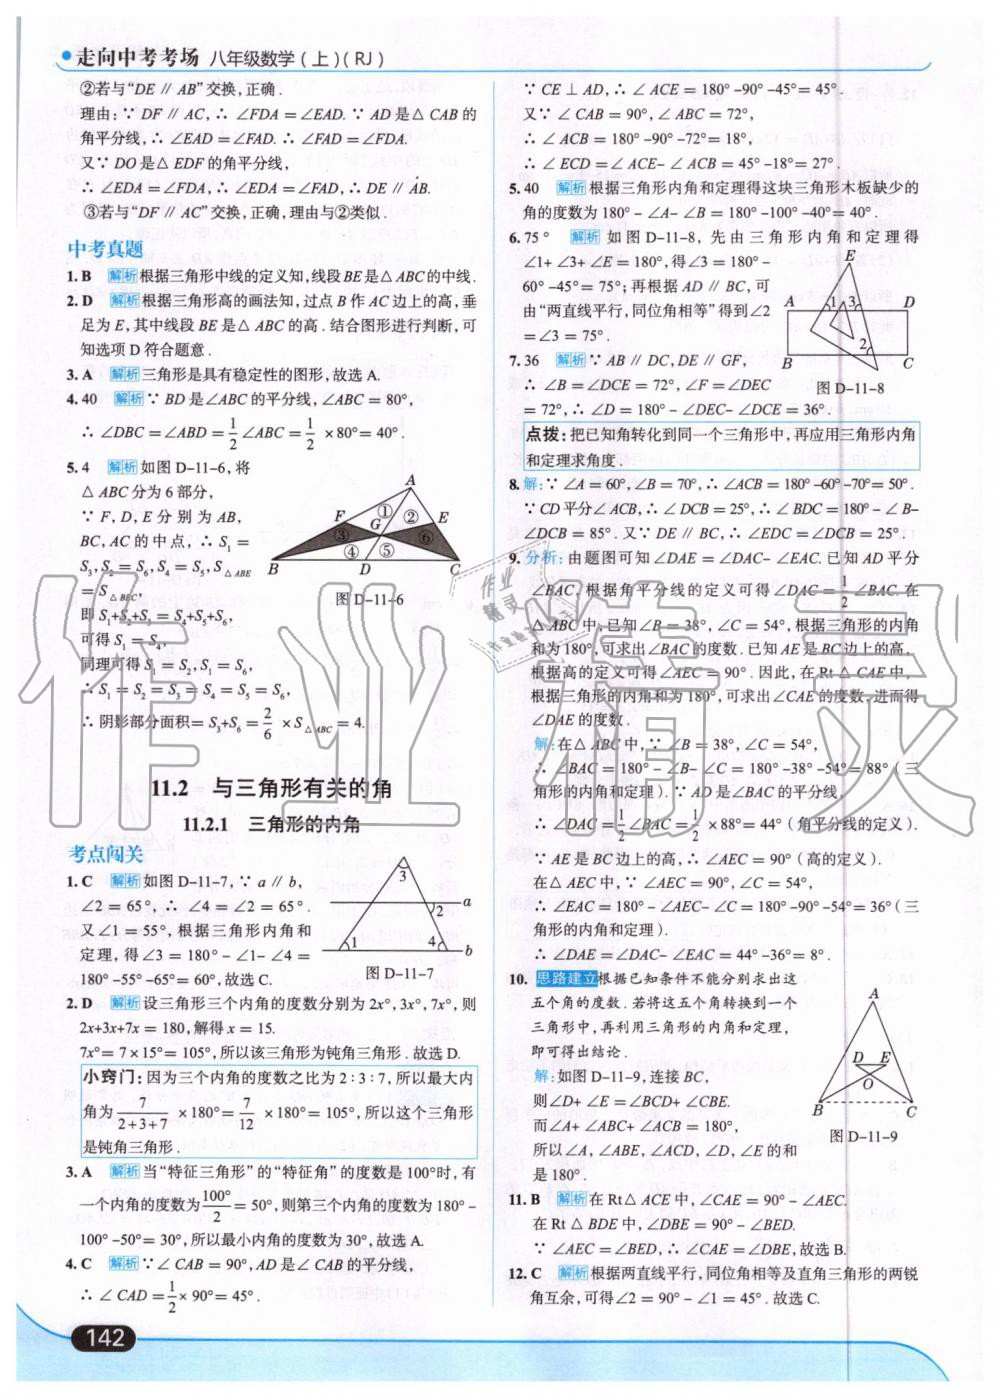 走向中考考场 八年级数学(上)(RJ)
②若与“DE∥AB”交换,正确.
理由:∵DF∥AC,∴∠FDA=∠EAD.∵AD是△CAB的
角平分线,∴∠EAD=∠FAD.∴∠FDA=∠FAD.
又∵DO是△EDF的角平分线,
∴∠EDA=∠FDA,∴∠EDA=∠FAD,∴DE∥AB.
③若与“DF∥AC”交换,正确,理由与②类似.
中考真题
1.B 解析 根据三角形中线的定义知,线段BE是△ABC的中线.
2.D 解析 根据三角形高的画法知,过点B作AC边上的高,垂
足为E,其中线段BE是△ABC的高.结合图形进行判断,可
知选项D符合题意.
3.A 解析 三角形是具有稳定性的图形,故选A.
4.40 解析 ∵BD是∠ABC的平分线,∠ABC=80°,
∴∠DBC=∠ABD=1/2∠ABC=1/2×80°=40°.
5.4 解析 如图D-11-6,将
△ABC分为6部分,
∵F,D,E分别为AB,
BC,AC的中点,∴S₁=
S₃,S₂=S₆,S₄=S₅,S△ABE
=S△BEC,
即S₁+S₂+S₃=S₄+S₅+S₆,
可得S₁=S₄,
同理可得S₁=S₅,S₁=S₆,
∴S₁=S₂=S₃=S₄=S₅=S₆,
∴阴影部分面积=S₃+S₆=2/6×S△ABC=4.
A
F
E
G
①
②
③
④
⑤
⑥
B D C
图D-11-6
11.2 与三角形有关的角
11.2.1 三角形的内角
考点闯关
1.C 解析 如图D-11-7,∵a∥b,
∠2=65°,∴∠4=∠2=65°.
又∠1=55°,根据三角形内角和
定理,得∠3=180°-∠1-∠4=
180°-55°-65°=60°,故选C.
3
2 a
1 4 b
图D-11-7
2.D 解析 设三角形三个内角的度数分别为2x°,3x°,7x°,则
2x+3x+7x=180,解得x=15.
7x°=7×15°=105°,所以该三角形为钝角三角形.故选D.
小窍门:因为三个内角的度数之比为2∶3∶7,所以最大内
角为7/(2+3+7)×180°=7/12×180°=105°,所以这个三角形
是钝角三角形.
3.A 解析 当“特征三角形”的“特征角”的度数是100°时,有
一个内角的度数为100°/2=50°,则第三个内角的度数为180°-
100°-50°=30°,所以最小内角的度数为30°,故选A.
4.C 解析 ∵∠CAB=90°,AD是∠CAB的平分线,
∴∠CAD=1/2×90°=45°.
142
∵CE⊥AD,∴∠ACE=180°-90°-45°=45°.
又∵∠CAB=90°,∠ABC=72°,
∴∠ACB=180°-90°-72°=18°,
∴∠ECD=∠ACE-∠ACB=45°-18°=27°.
5.40 解析 根据三角形内角和定理得这块三角形木板缺少的
角的度数为180°-∠A-∠B=180°-100°-40°=40°.
6.75° 解析 如图D-11-8,先由三角形内角和定理得
∠1+∠3+∠E=180°,得∠3=180°-
60°-45°=75°;再根据AD∥BC,可
由“两直线平行,同位角相等”得到∠2
=∠3=75°.
E
A 1 3 D
2
B C
图D-11-8
7.36 解析 ∵AB∥DC,DE∥GF,
∴∠B=∠DCE=72°,∠F=∠DEC
=72°,∴∠D=180°-∠DEC-∠DCE=36°.
点拨:把已知角转化到同一个三角形中,再应用三角形内角
和定理求角度.
8.解:∵∠A=60°,∠B=70°,∴∠ACB=180°-60°-70°=50°.
∵CD平分∠ACB,∴∠DCB=25°,∴∠BDC=180°-∠B-
∠DCB=85°.又∵DE∥BC,∴∠EDC=∠DCB=25°.
9.分析:由题图可知∠DAE=∠DAC-∠EAC.已知AD平分
∠BAC,根据角平分线的定义可得∠DAC=1/2∠BAC.在
△ABC中,已知∠B=38°,∠C=54°,根据三角形的内角
和为180°,可求出∠BAC的度数.已知AE是BC边上的高,
根据高的定义可得∠AEC=90°.因此,在Rt△CAE中,
根据三角形的内角和为180°,可求出∠CAE的度数,进而得
∠DAE的度数.
解:在△ABC中,∵∠B=38°,∠C=54°,
∴∠BAC=180°-∠B-∠C=180°-38°-54°=88°(三
角形的内角和定理).∵AD是∠BAC的平分线,
∴∠DAC=1/2∠BAC=1/2×88°=44°(角平分线的定义).
∵AE是BC边上的高,∴∠AEC=90°(高的定义).
在△AEC中,∵∠AEC=90°,∠C=54°,
∴∠EAC=180°-∠AEC-∠C=180°-90°-54°=36°(三
角形的内角和定理).
∴∠DAE=∠DAC-∠EAC=44°-36°=8°.
10.思路建立 根据已知条件不能分别求出这
五个角的度数.若将这五个角转换到一个
三角形中,再利用三角形的内角和定理,
即可得出结论.
解:如图D-11-9,连接BC,
则∠D+∠E=∠BCD+∠CBE.
而∠A+∠ABC+∠ACB=180°,
所以∠A,∠ABE,∠ACD,∠D,∠E的和
是180°.
A
D E
O
B C
图D-11-9
11.B 解析 在Rt△ACE中,∠CAE=90°-∠AEC.
在Rt△BDE中,∠DBE=90°-∠BED.
∵∠AEC=∠BED,∴∠CAE=∠DBE,故选B.
12.C 解析 根据两直线平行,同位角相等及直角三角形的两锐
角互余,可得∠2=90°-∠1=45°.故选C.
作业精灵